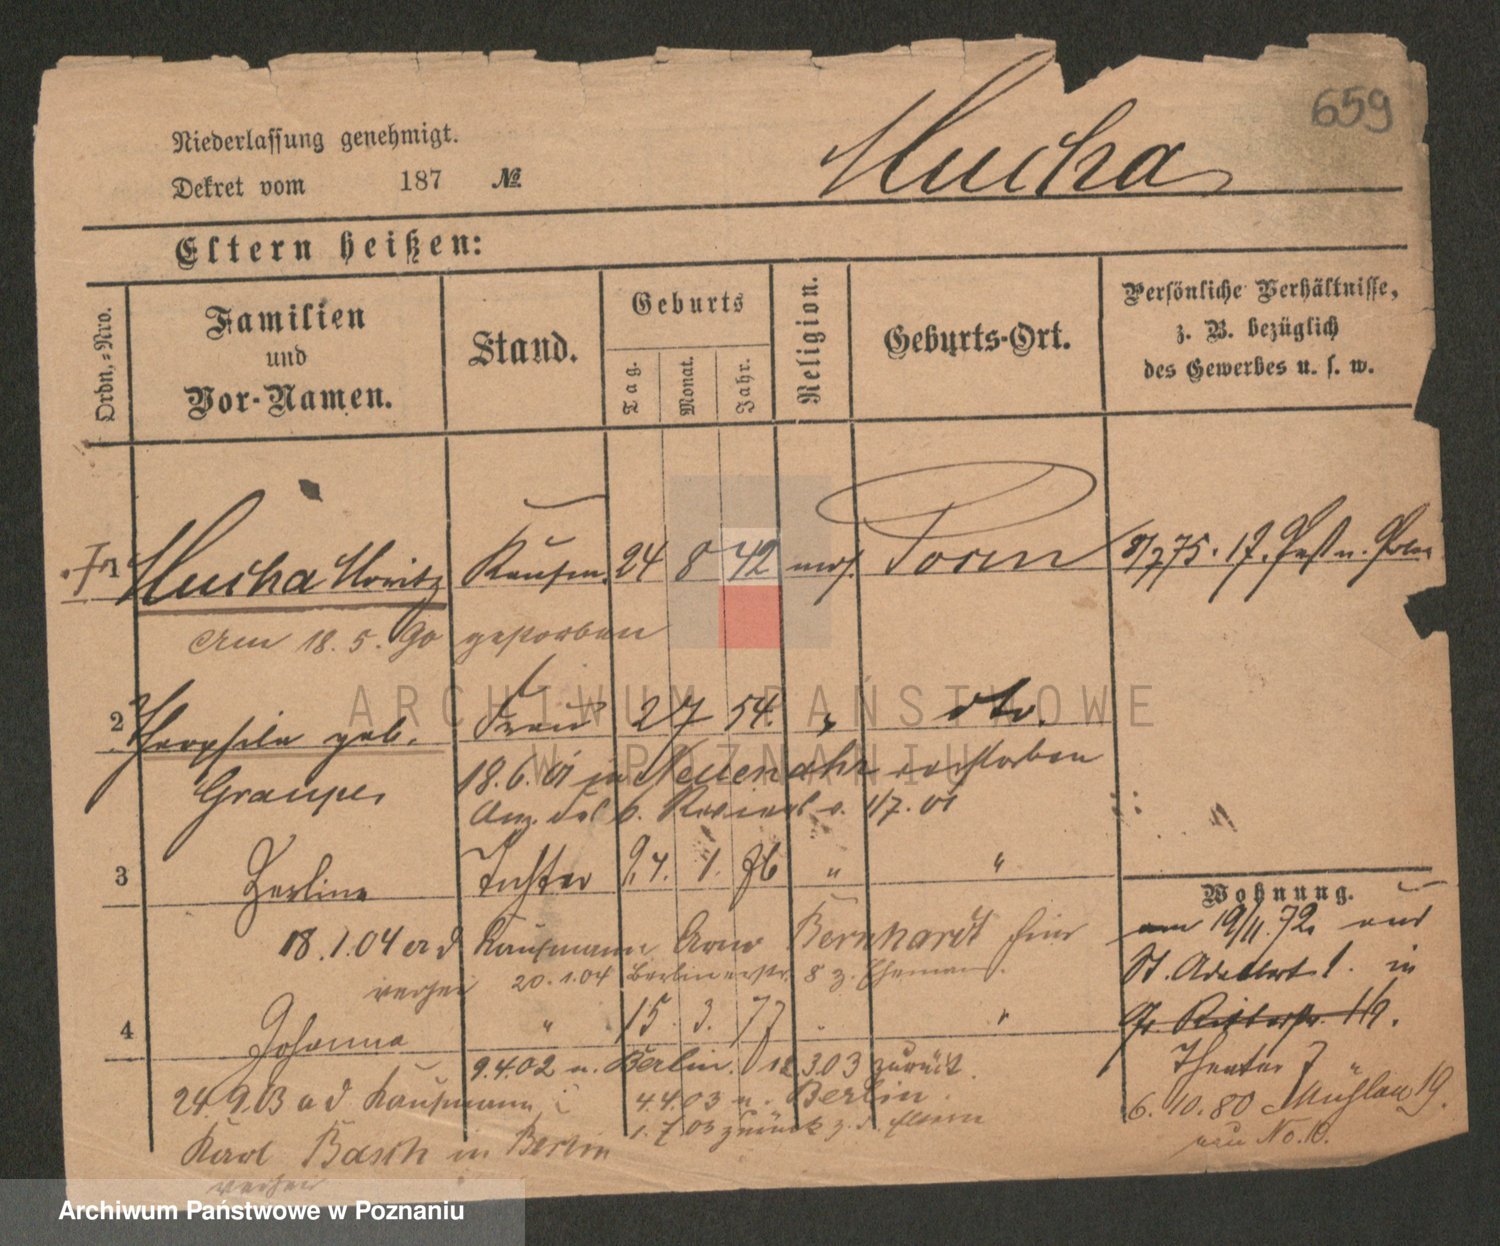 659
Mucha
Niederlassung genehmigt.
Dekret vom 187 №
Eltern heißen:
Ordn.-Nro.
Familien und Vor-Namen.
Stand.
Geburts
Tag.
Monat.
Jahr.
Religion.
Geburts-Ort.
Persönliche Verhältnisse,
z. B. bezüglich
des Gewerbes u. s. w.
1 Mucha Moritz Kaufm. 24 8 42 mos. Posen
am 18. 5. 90 gestorben
2 Theophila geb. Frau 2 7 54. " dto.
Graupe 18.6.01 in Neuenahr verstorben
Anz. des 6. Reviers v. 1/7.01
3 Zerline Tochter 24. 1. 76 " "
18.1.04 a d Kaufmann Bernhardt
20.1.04 Berlin
4 Johanna " 15. 3. 77 "
9.4.02 n. Berlin. 12 3 03 zurück.
24.9.03 a d Kaufmann 4.4.03 n. Berlin.
1.7.03 zurück z. d. Eltern
Karl Basch in Berlin
verheir
Wohnung.
am 19/11.72. aus
St. Adalbert 1. in
Gr. Ritterstr. 1/9.
Theater 7
6. 10. 80 Mühlen 19.
neu No. 10.
ARCHIWUM PAŃSTWOWE
W POZNANIU
Archiwum Państwowe w Poznaniu